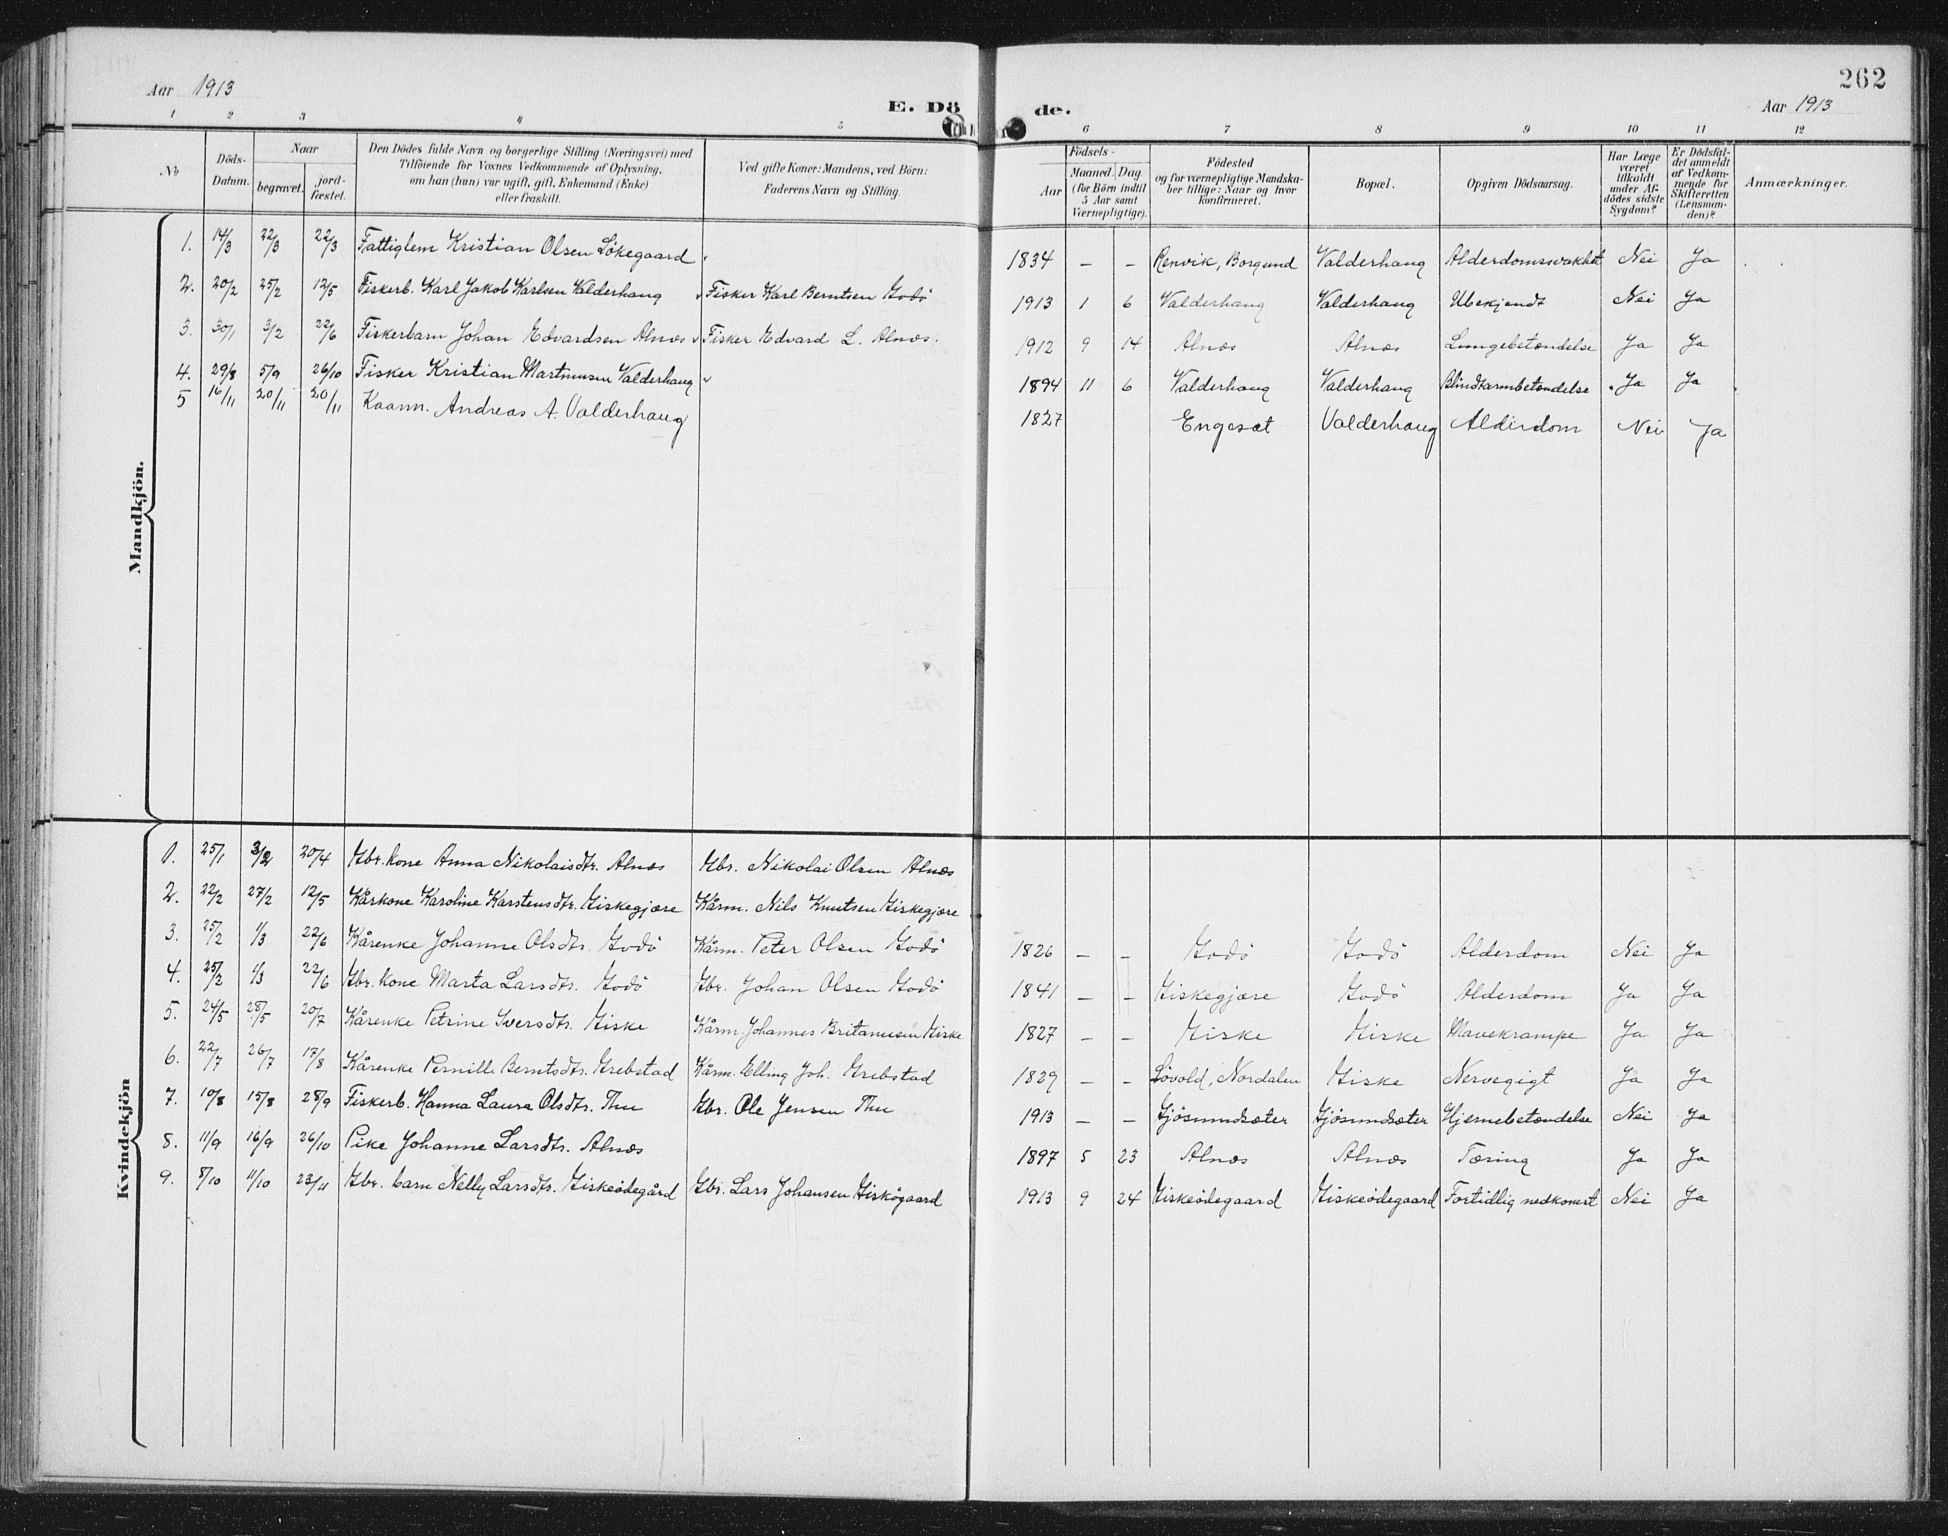 Aar 1913 E. Dö de. Aar 1913 262
1 2 3 4 5 6 7 8 9 10 11 12
No Döds-Datum. Naar begravet. jord-fæstet. Den Dödes fulde Navn og borgerlige Stilling (Næringsvei) med Tilföiende for Voxnes Vedkommende af Oplysning, om han (hun) var ugift, gift, Enkemand (Enke) eller fraskilt. Ved gifte Koner: Mandens, ved Börn: Faderens Navn og Stilling. Födsels- Aar Maaned. Dag. (for Börn indtil 5 Aar samt Værnepligtige). Födested og for værnepligtige Mandska-ber tillige: Naar og hvor konfirmeret. Bopæl. Opgiven Dödsaarsag. Har Læge været tilkaldt under Af-dödes sidste Sygdom? Er Dödsfal-det anmeldt af Vedkom-mende for Skifteretten (Lensman-den)? Anmærkninger.
Mandkjön.
1. 14/3 22/3 22/3 Fattiglem Kristian Olsen Lökegaard 1834 – – Renvik, Borgund Valderhaug Alderdomssvakhet Nei Ja
2. 20/2 25/2 12/5 Fiskerb. Karl Jakob Karlsen Valderhaug Fisker Karl Berntsen Godö 1913 1 6 Valderhaug Valderhaug Ubekjendt Nei Ja
3. 30/1 3/2 22/6 Fiskerbarn Johan Edvardsen Alnæs Fisker Edvard L. Alnæs. 1912 9 14 Alnæs Alnæs Lungebetændelse Ja Ja
4. 29/8 5/9 26/10 Fisker Kristian Martinusen Valderhaug 1894 11 6 Valderhaug Valderhaug Blindtarmbetændelse Ja Ja
5 16/11 20/11 20/11 Kaarm. Andreas A. Valderhaug 1827 Engeset Valderhaug Alderdom Nei Ja
Kvindekjön
1. 25/1 3/2 20/4 Gbr. kone Anna Nikolaisdtr. Alnæs Gbr. Nikolai Olsen Alnæs
2. 22/2 27/2 12/5 Kårkone Karoline Karstensdtr. Giskegjære Kårm. Nils Knutsen Giskegjære
3. 25/2 1/3 22/6 Kårenke Johanne Olsdtr. Godö Kårm. Peter Olsen Godö 1826 – – Godö Godö Alderdom Nei Ja
4. 25/2 1/3 22/6 Gbr. kone Marta Larsdtr. Godö Gbr. Johan Olsen Godö 1841 – – Giskegjære Godö Alderdom Ja Ja
5. 24/5 28/5 20/7 Kårenke Petrine Iversdtr. Giske Kårm. Johannes Britanusen Giske 1827 – – Giske Giske Mavekrampe Ja Ja
6. 22/7 26/7 17/8 Kårenke Pernille Berntsdtr. Grebstad Kårm. Elling Joh. Grebstad 1829 – – Lövold, Nordalen Giske Nervegigt Ja Ja
7. 10/8 15/8 28/9 Fiskerb. Hanna Laura Olsdtr. Thu Gbr. Ole Jensen Thu 1913 – – Gjösundsæter Gjösundsæter Hjernebetændelse Nei Ja
8. 11/9 16/9 26/10 Pike Johanne Larsdtr. Alnæs 1897 5 23 Alnæs Alnæs Tæring Ja Ja
9. 8/10 11/10 23/11 Gbr. barn Nelly Larsdtr. Giskeödegård Gbr. Lars Johansen Giskögaard 1913 9 24 Giskeödegaard Giskeödegaard Fortidlig nedkomst Nei Ja